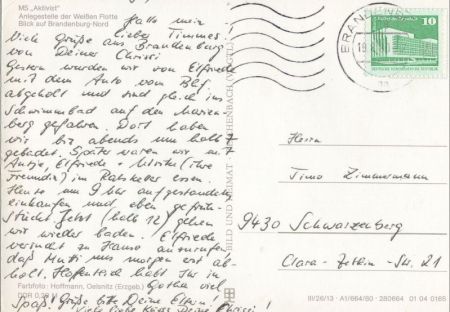 MS „Aktivist"
Anlegestelle der Weißen Flotte
Blick auf Brandenburg-Nord
Hallo mein
lieber Timmes!
Viele Grüße aus Brandenburg
von Deiner Chrissi
Gestern wurden wir von Elfriede
mit dem Auto vom Bhf.
abgeholt und sind gleich ins
Schwimmbad auf den Marien-
berg gefahren. Dort haben
wir bis abends um halb 7
gebadet. Später waren wir mit
Antje, Elfriede + (ihre
Freundin) im Ratskeller essen.
Heute um 9 Uhr aufgestanden,
einkaufen und eben gefrüh-
stückt. Jetzt (halb 12) gehen
wir wieder baden. Elfriede
versucht zu Hause anzurufen,
daß Mutti uns morgen erst ab-
holt. Hoffentlich habt Ihr in
Gotha viel
Spaß! Grüße bitte Deine Eltern!
Viele liebe Küsse Deine Chrissi!
Farbfoto: Hoffmann, Oelsnitz (Erzgeb.)
DDR 0,20 M
BILD UND HEIMAT REICHENBACH (VOGTL)
BRANDENBURG
10
DEUTSCHE DEMOKRATISCHE REPUBLIK
Herrn
Timo Zimmermann
9430 Schwarzenberg
Clara-Zetkin-Str. 21
III/26/13 A1/664/80 280664 01 04 0165